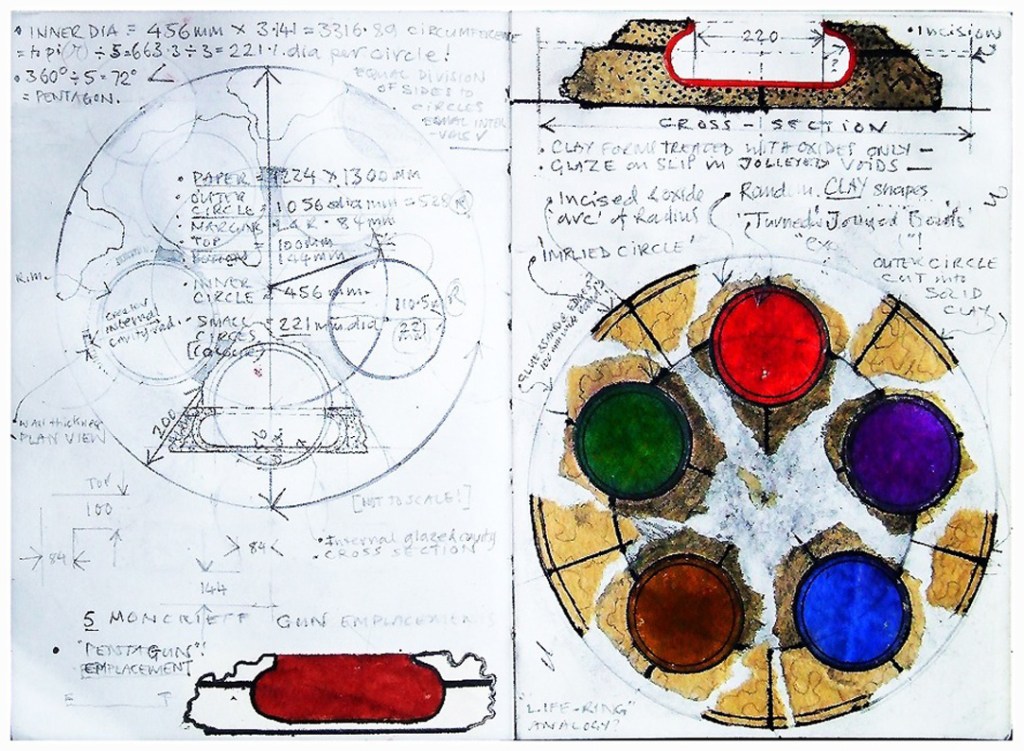 • INNER DIA = 456mm × 3·141 = 3316·89 CIRCUMFERENCE
÷ 5 = 663·3 ÷ 3 = 221·1. dia per circle!
• 360° ÷ 5 = 72°
= PENTAGON.
EQUAL DIVISION
OF SIDES TO
CIRCLES
EQUAL INTER
-VALS
• PAPER = 1224 × 1300mm
• OUTER
CIRCLE: 1056 dia mm = 528 (R)
• MARGINS L & R · 84mm
• TOP = 100mm
BOTTOM 144mm
• INNER
CIRCLE = 456 mm.
• SMALL = 221 mm dia
CIRCLES
(COLOUR)
110·5 (R)
221
R.I.M.
internal
cavity rad.
wall thickness
PLAN VIEW
200
[NOT TO SCALE!]
TOP
100
84
84
144
• Internal glazed cavity
• CROSS SECTION
5 MONCRIEFF GUN EMPLACEMENTS
• "PENTAGUN"!
EMPLACEMENT
220
?
• Incision
CROSS - SECTION
• CLAY FORMS TREATED WITH OXIDES ONLY —
• GLAZE ON SLIP IN JOLLEYED VOIDS —
• Incised & oxide
'arc' of Radius
'IMPLIED CIRCLE'
Random CLAY shapes
'Turned & Jollyed Bowls'
OUTER CIRCLE
CUT into
SOLID
CLAY
"LIFE-RING"
ANALOGY?